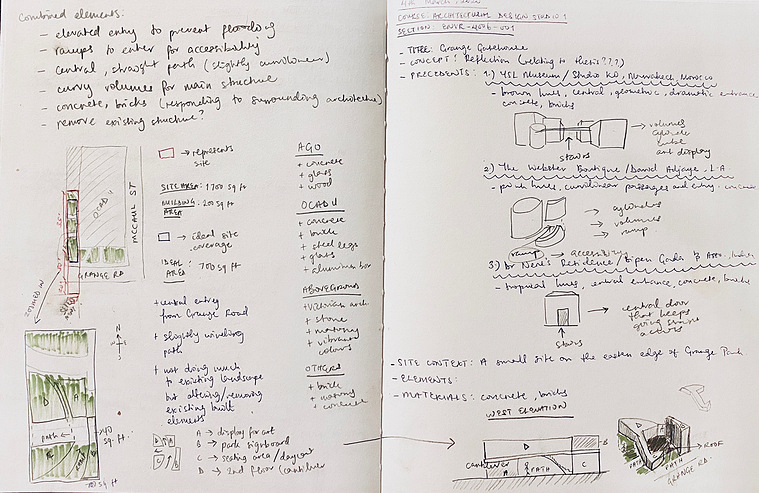 Combined elements:
- elevated entry to prevent flooding
- ramps to enter for accessibility
- central, straight path (slightly curvilinear)
- curvy volumes for main structure
- concrete, bricks (responding to surrounding architecture)
- remove existing structure?
→ represents site
SITE AREA: 1700 sq ft
BUILDING AREA: 200 sq ft
→ ideal site coverage
IDEAL AREA: 700 sq ft
OCAD U
MCCAUL ST
GRANGE RD
ZOOMED IN
+ central entry
from Grange Road
+ slightly winding
path
+ not doing much
to existing landscape
but altering/removing
existing built
elements
AGO
+ concrete
+ glass
+ wood
OCAD U
+ concrete
+ brick
+ steel legs
+ glass
+ aluminum
ABOVEGROUND
+ Victorian arch.
+ stone
+ masonry
+ vibrant
colours
OTHERS
+ brick
+ masonry
+ concrete
N
PATH
sq. ft
A → display for art
B → park signboard
C → seating area
D → 2nd floor (cantilever
March,
COURSE: ARCHITECTURE DESIGN STUDIO 1
SECTION: ENVR-2006-001
- TITLE: Grange Gatehouse
- CONCEPT: Reflection (relating to thesis???)
- PRECEDENTS: 1.) YSL Museum / Studio KO, Marrakech, Morocco
- brown hues, central, geometric, dramatic entrance
concrete, bricks
→ volumes
cylinder
cube
art display
stairs
2) The Webster Boutique / David Adjaye, L.A.
- pink hues, curvilinear passages and entry
→ cylinders
→ volumes
→ ramp
ramp → accessibility
3.) Residence /
- tropical hues, central entrance, concrete,
→ central door
that keeps
giving
access
stairs
- SITE CONTEXT: A small site on the eastern edge of Grange Park.
- ELEMENTS:
- MATERIALS: concrete, bricks
WEST ELEVATION
D
B
cantilever
A
PATH
C
ROOF
PATH
GRANGE RD.